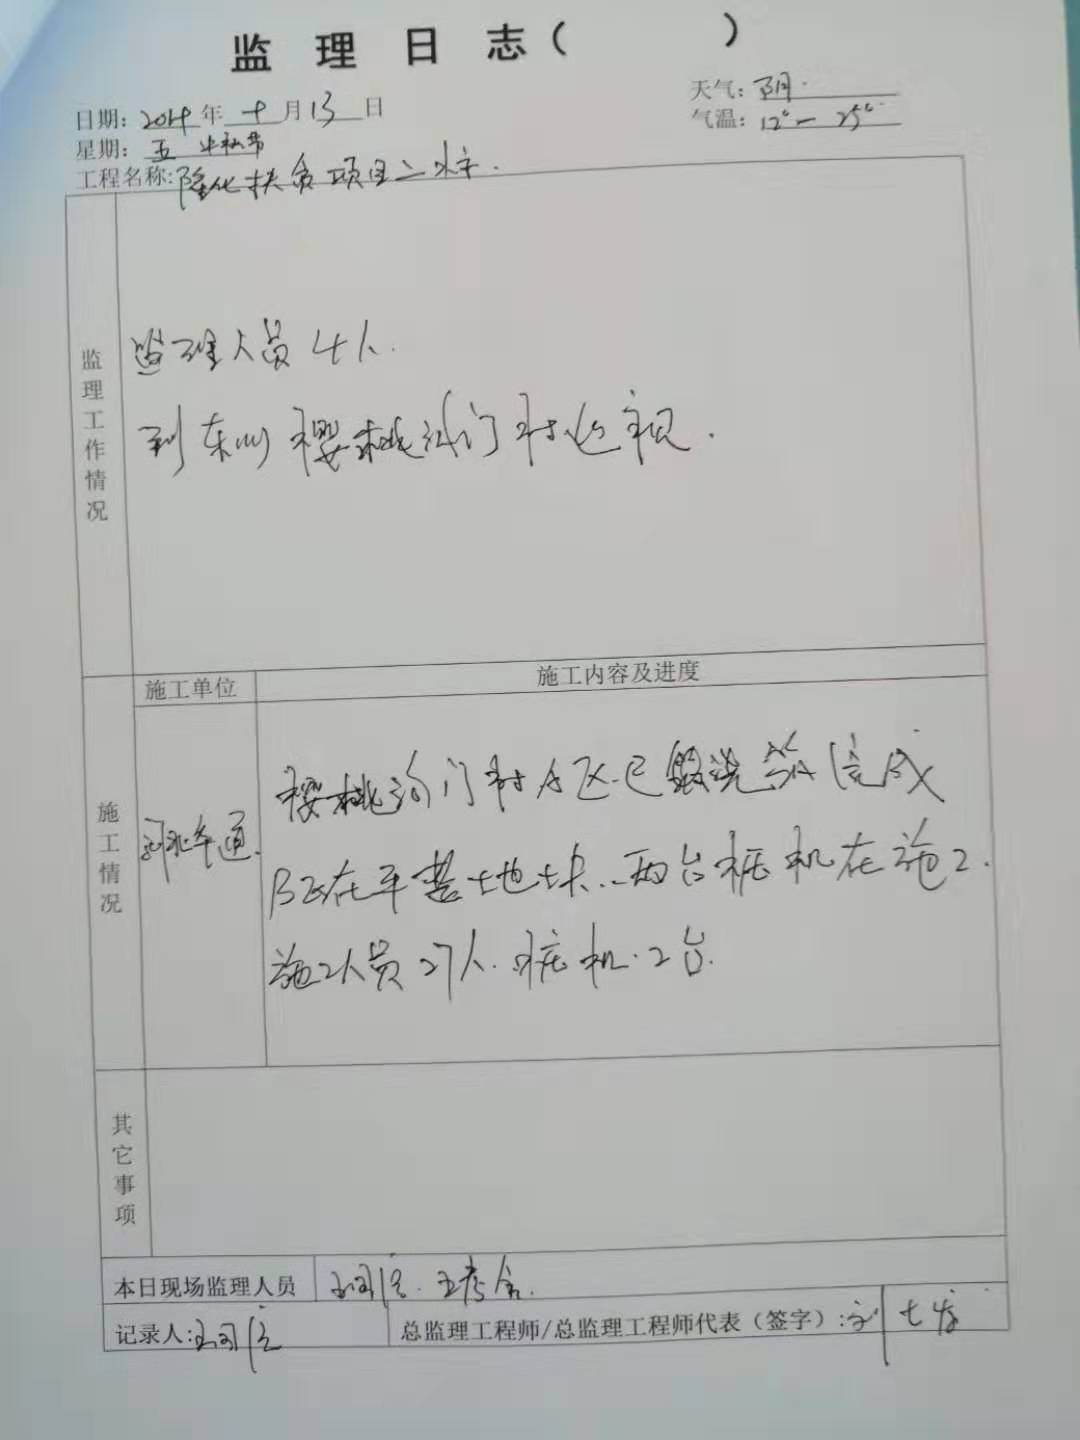 监理日志( )
日期: 2019年十月13日
天气: 阴.
星期: 五 中秋节
气温: 12°—25°
工程名称: 隆化扶贫项目二标.
监理工作情况
监理人员4人.
到东山樱桃沟门村巡视.
施工情况
施工单位
施工内容及进度
河北华通.
樱桃沟门村A区已 完成
B区在平整土地块..两台桩机在施工.
施工人员27人.桩机.2台.
其它事项
本日现场监理人员
记录人:
总监理工程师/总监理工程师代表(签字):